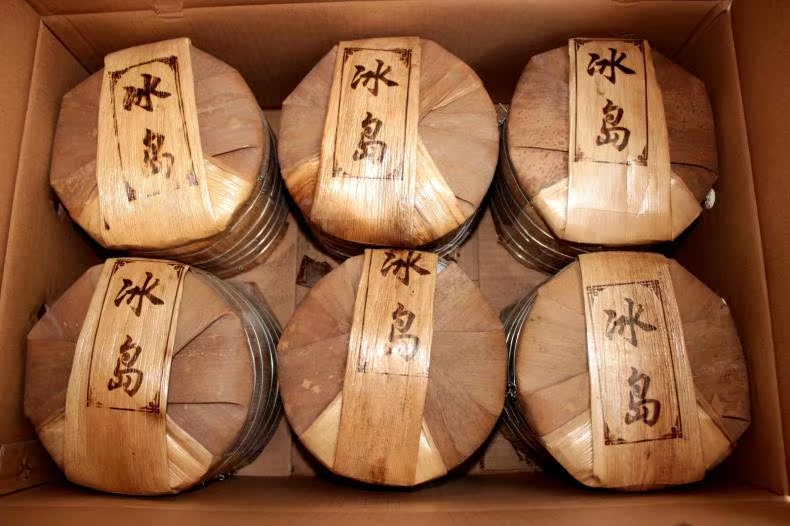 冰島
冰島
冰島
冰島
冰島
冰島